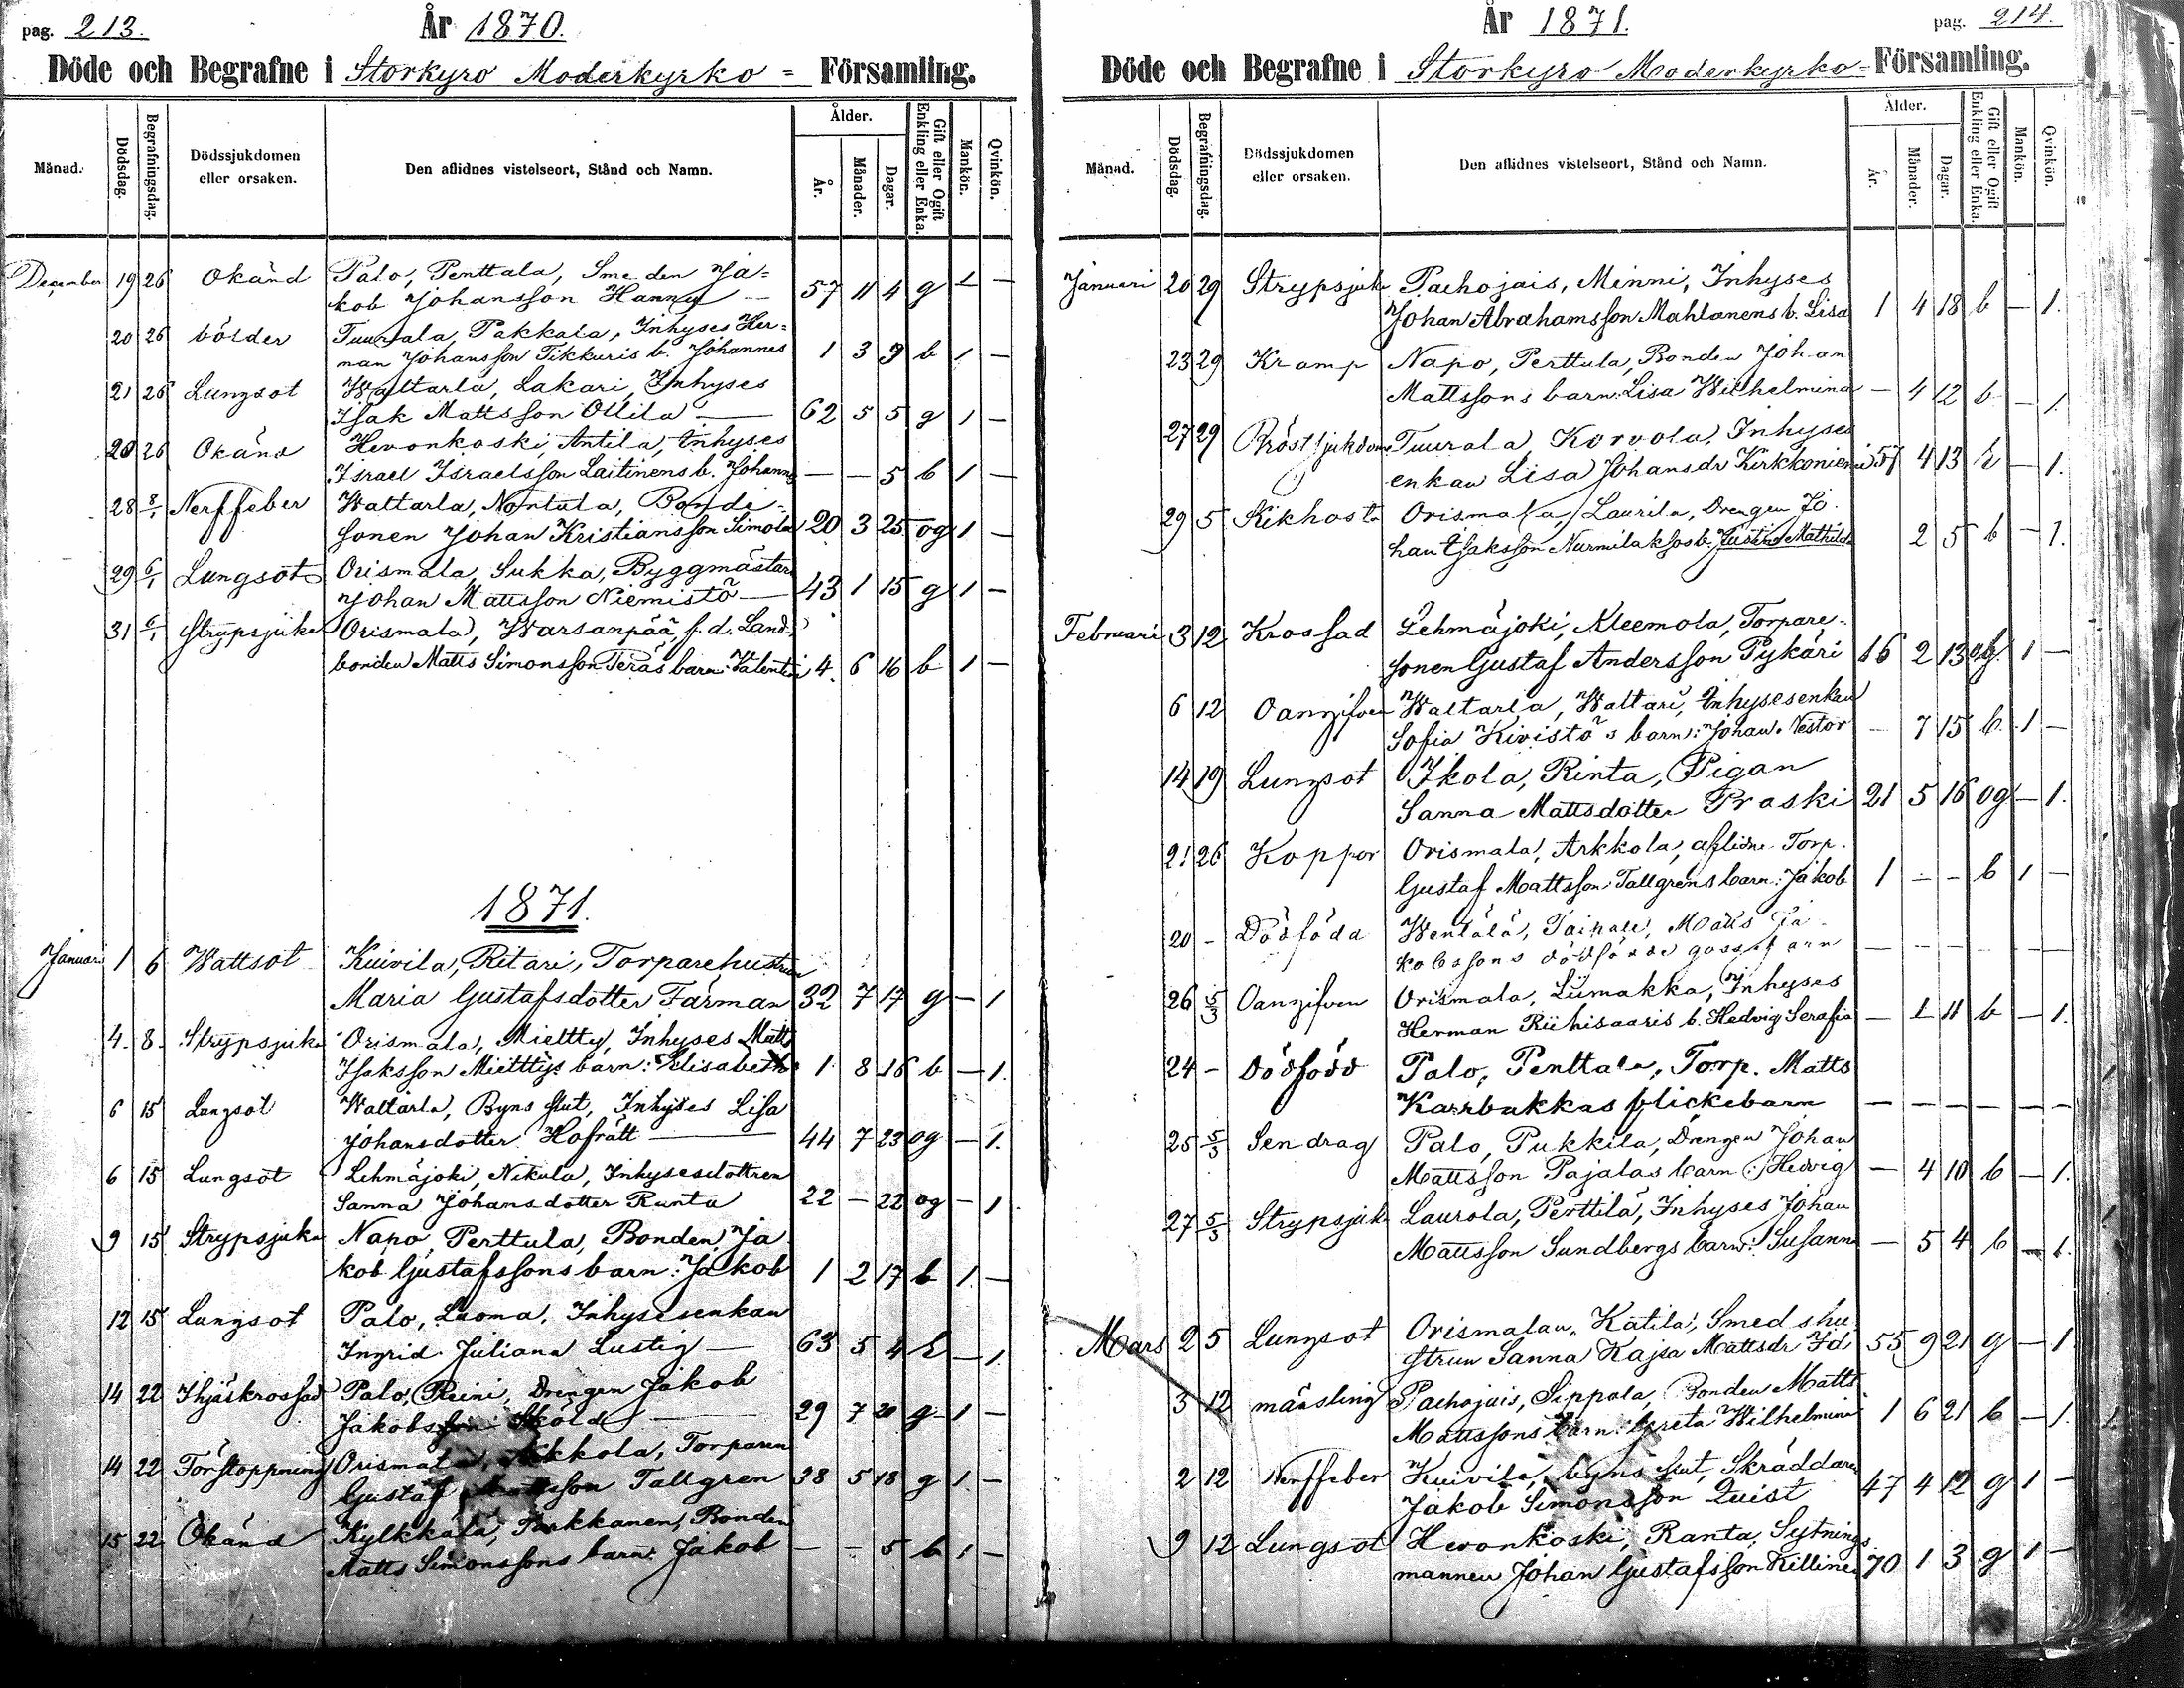 pag. 213.
År 1870.
Döde och Begrafne i Storkyro Moderkyrko= Församling.
Månad.
Dödsdag.
Begrafningsdag.
Dödssjukdomen
eller orsaken.
Den aflidnes vistelseort, Stånd och Namn.
Ålder.
År.
Månader.
Dagar.
Gift eller Ogift
Enkling eller Enka.
Mankön.
Qvinkön.
December 19 26 Okänd Palo, Penttala, Smeden Ja=
kob Johansson Hanny — 57 11 4 g 1 —
20 26 bölder Tuurala, Pakkala, Inhyses Her=
man Johansson Tikkuris b. Johannes 1 3 9 b 1 —
21 26 Lungsot Waltarla, Lakari, Inhyses
Isak Mattsson Ollila — 62 5 5 g 1 —
26 Okänd Hevonkoski, Antila, Inhyses
Israel Israelsson Laitinens b. Johannes — — 5 b 1 —
28 8/1 Nerffeber Waltarla, Nontula, Bonde-
sonen Johan Kristiansson Simola 20 3 25 og 1 —
29 6/1 Lungsot Orismala, Sukka, Byggmästare
Johan Mattsson Niemistö — 43 1 15 g 1 —
31 6/1 Strypsjuka Orismala, Warsanpää, f.d. Land-
bonden Matts Simonsson Teräs barn: Valentin 4. 6 16 b 1 —
1871.
Januari 1 6 Wattsot Kuivila, Ritari, Torparehustrun
Maria Gustafsdotter Färman 32 7 17 g — 1
4. 8. Strypsjuka Orismala, Mieltty, Inhyses Matts
Isaksson Mielttys barn: Elisabeth 1 8 16 b — 1.
6 15 Lungsot Waltarla, Byns slut, Inhyses Lisa
Johansdotter Hofrätt — 44 7 23 og — 1.
6 15 Lungsot Lehmäjoki, Nikula, Inhysesdottren
Sanna Johansdotter Runta 22 — 22 og — 1
9 15 Strypsjuka Napo Perttula, Bonden Ja
kob Gustafssons barn: Jakob 1 2 17 b 1. —
12 15 Lungsot Palo, Luoma, Inhysesenkan
Ingrid Juliana Lustig — 63 5 4 E — 1.
14 22 Ihjäskrossad Palo, Reini, Drengen Jakob
Jakobsson Sköld — 29 7 20 g 1 —
14 22 Förstoppning Orismala, Arkkola, Torparen
Gustaf Mattsson Tallgren 38 5 18 g 1. —
15 22 Okänd Kylkkälä, Parkkanen, Bonden
Matts Simonssons barn: Jakob — — 5 b 1 —
År 1871.
pag. 214.
Döde och Begrafne i Storkyro Moderkyrko= Församling.
Månad.
Dödsdag.
Begrafningsdag.
Dödssjukdomen
eller orsaken.
Den aflidnes vistelseort, Stånd och Namn.
Ålder.
År.
Månader.
Dagar.
Gift eller Ogift
Enkling eller Enka.
Mankön.
Qvinkön.
Januari 20 29 Strypsjuk Pachojais, Minni, Inhyses
Johan Abrahamsson Mahlanens b. Lisa 1 4 18 b — 1.
23 29 Kramp Napo, Perttula, Bonden Johan
Mattssons barn: Lisa Wilhelmina — 4 12 b — 1.
27 29 Bröstsjukdom Tuurala, Korvola, Inhyses
enkan Lisa Johansdr Kirkkoniemi 57 4 13 E — 1.
29 5 Kikhosta Orismala, Laurila, Drengen Jo.
han Isaksson Nurmilaksos b. Justina Mathilda 2 5 b — 1.
Februari 3 12 Krossad Lehmäjoki, Kleemola, Torpare-
sonen Gustaf Andersson Pykäri 16 2 13 og 1 —
6 12 Oangifven Waltarla, Waltari, Inhysesenkan
Sofia Kivistö's barn: Johan Nestor — 7 15 b. 1 —
14 19 Lungsot Ikola, Rinta, Pigan
Sanna Mattsdotter Praski 21 5 16 og — 1.
21 26 Koppor Orismala, Arkkola, aflidne Torp.
Gustaf Mattsson Tallgrens barn: Jakob 1 — — b 1 —
20 — Dödföda Wentälä, Taipale, Matts Ja
kobssons dödfödde gossebarn — — — — — —
26 5/3 Oangifven Orismala, Liimakka, Inhyses
Herman Riihisaaris b. Hedvig Serafia — 1 11 b — 1.
24 — Dödfödd Palo, Penttala, Torp. Matts
Karrbakkas flickebarn — — — — — —
25 5/3 Sendrag Palo, Pukkila, Drengen Johan
Mattsson Pajalas barn: Hedvig — 4 10 b — 1.
27 5/3 Strypsjuk Laurola, Perttilä, Inhyses Johan
Mattsson Sundbergs barn: Susanna — 5 4 b — 1.
Mars 2 5 Lungsot Orismalan, Katila, Smedshu
strun Sanna Kajsa Mattsdr Id, 55 9 21 g — 1
3 12 mässling Pachojais, Sippola, Bonden Matts
Mattssons barn: Greta Wilhelmina 1 6 21 b — 1.
2 12 Nerffeber Kuivila, byns slut, Skräddaren
Jakob Simonsson Quist 47 4 12 g 1 —
9 12 Lungsot Hevonkoski, Ranta, Sytnings
mannen Johan Gustafsson Killinen 70 1 3 g 1 —